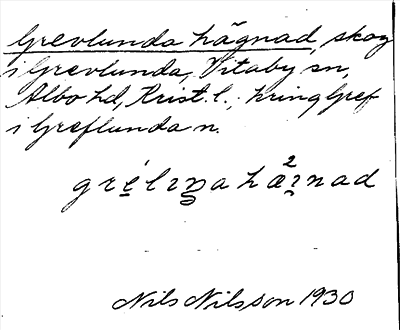 Grevlunda hägnad, skog
i Grevlunda, Vitaby sn,
Albo hd, Krist. l.; kring Gref
i Greflunda n.
hæ²
Nils Nilsson 1930